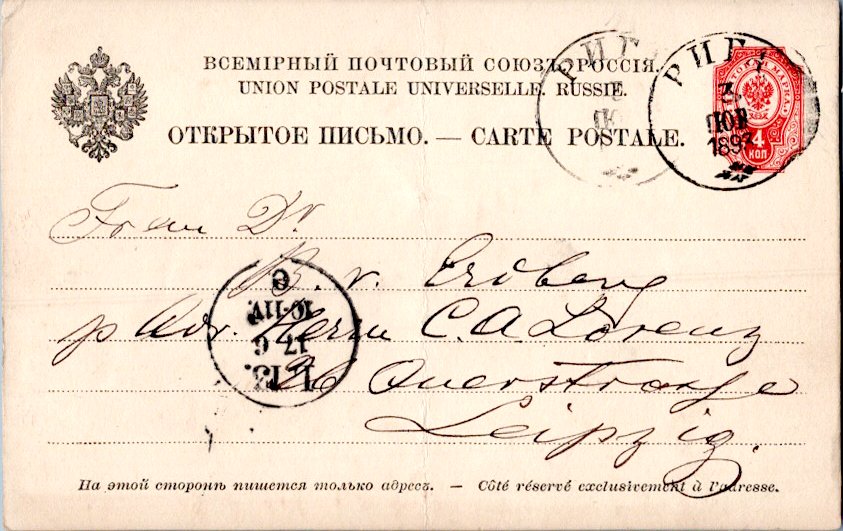 ВСЕМІРНЫЙ ПОЧТОВЫЙ СОЮЗЪ. РОССІЯ.
UNION POSTALE UNIVERSELLE. RUSSIE.
ОТКРЫТОЕ ПИСЬМО. — CARTE POSTALE.
РИГА
РИГА
ІЮН
1897
4
КОП
Frau Dr
B. v. Erdberg
p Adr. Herrn C. A Lorenz
26 Querstrasse
Leipzig.
L. 13.
17 6
10-11V.
На этой сторонѣ пишется только адресъ. — Côté réservé exclusivement à l'adresse.